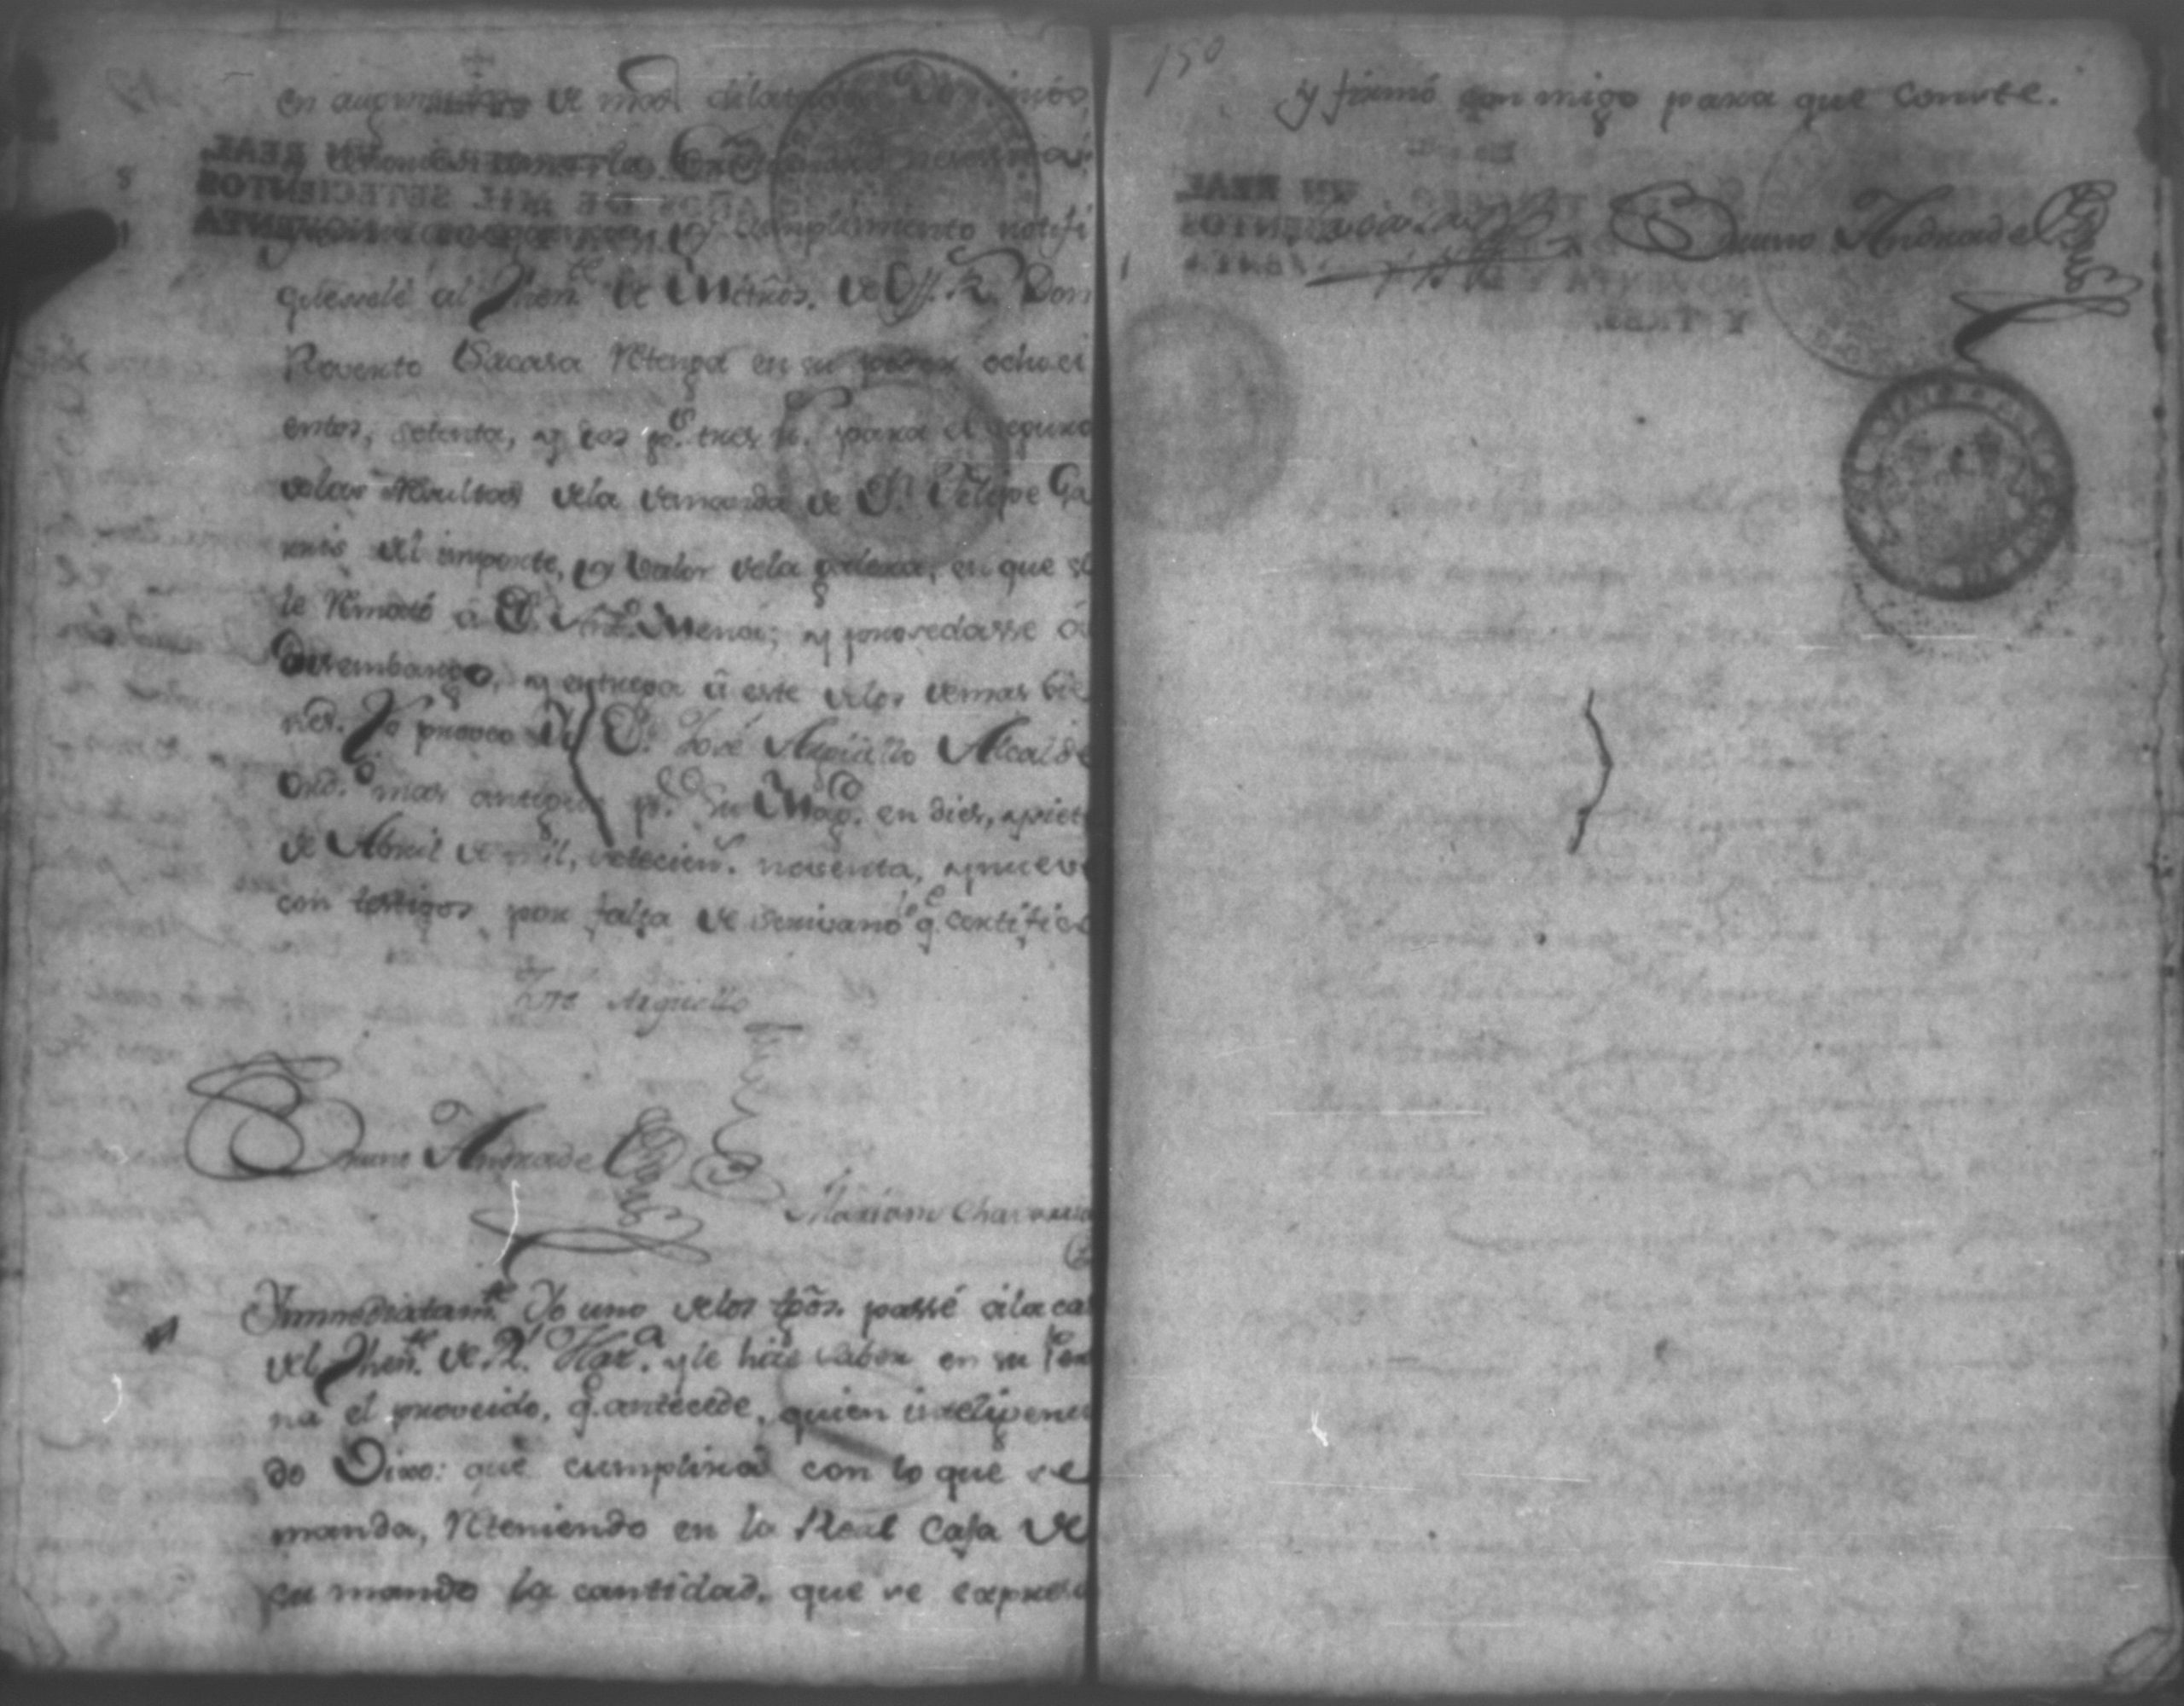 en augmento de mas dilatados terminos,
cumplimiento notifi
quessele al Then.te de Mítros. de Rl. Hz.a Don
Roverto Sacasa retenga en su poder ochoci
entos, setenta, y dos p.s tres r.s para el seguro
delas resultas dela demanda de D.n Felipe Ga
mis del importe, y valor dela galera, en que se
le remató a D.n Ant.o Mena; y procedasse al
desembargo, y entrega â este delos demas bie
nes. Yo proveo D.n José Arguello Alcalde
Ord.o mas antiguo p.r Su Mag.d en dies, y siete
de Abril de mil, setecien.s noventa, y nueve
con testigos por falta de Scrivano lo q.e certifico
José Arguello
Bruno Andrade
Mariano Chavarria
Immediatam.te Yo uno delos tgôs. passé âla ca
del Then.te de Rl. Haz.a y le hice saber en su Perso
na el proveido, q.e antecede, quien inteligencia
do Dixo: que cumplirá con lo que se
manda, reteniendo en la Real Caja de
su mando la cantidad, que se expresa
150
y firmó conmigo para que conste.
Bruno Andrade
UN REAL
AÑOS DE MIL SETECIENTOS
NOVENTA
Y TRES.